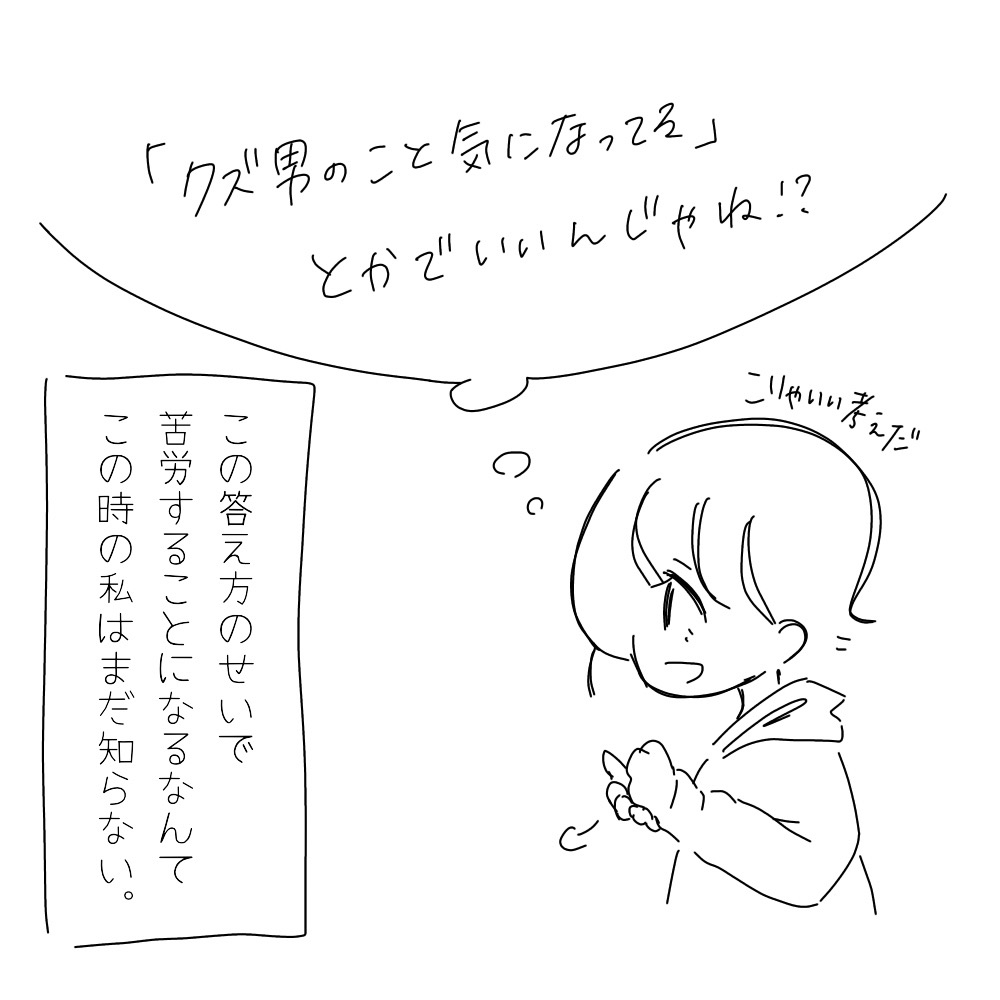 「クズ男のこと気になってそ」
とかでいいんじゃね!?
こりゃいい考えだ
この答え方のせいで
苦労することになるなんて
この時の私はまだ知らない。